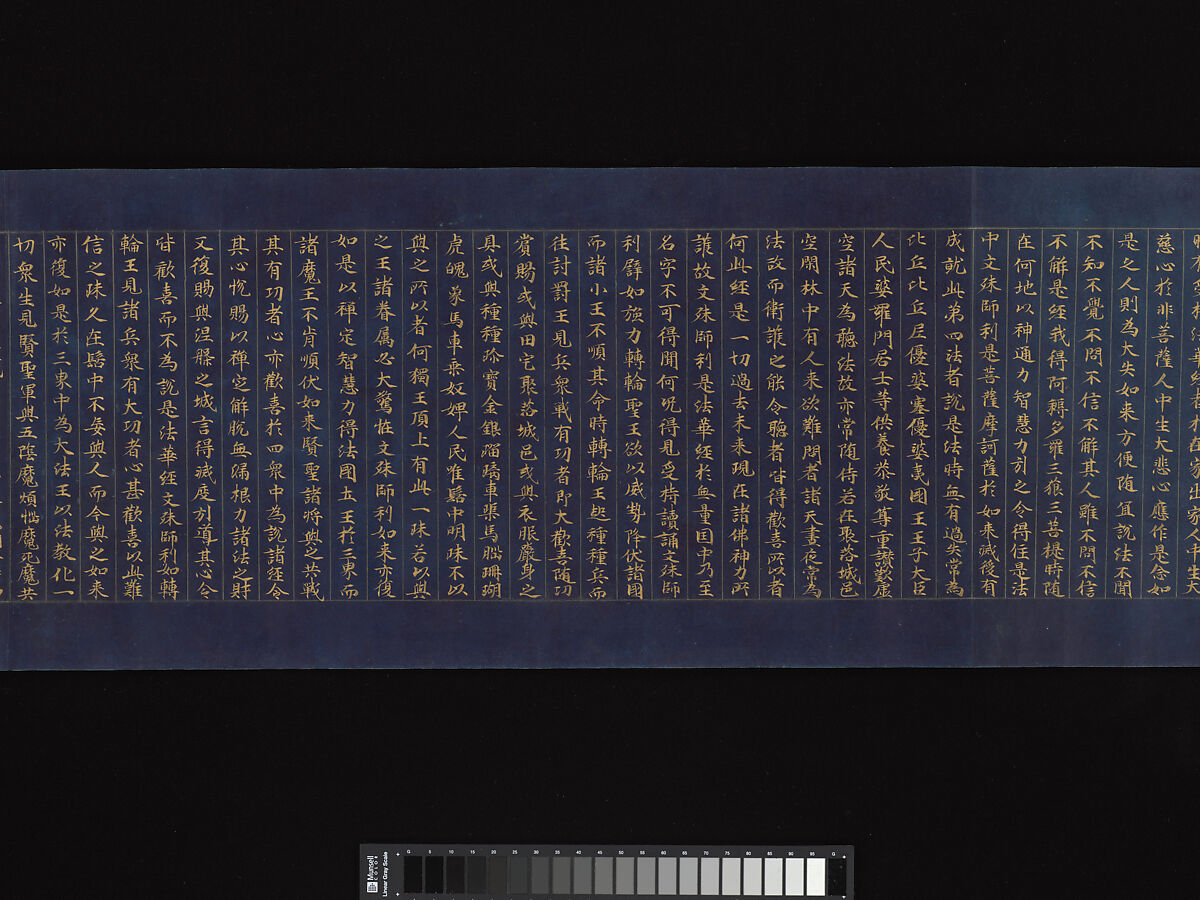 慈心於非菩薩人中生大悲心應作是念如
是之人則為大失如来方便随冝說法不聞
不知不覺不問不信不解其人雖不問不信
不解是經我得阿耨多羅三藐三菩提時随
在何地以神通力智慧力引之令得住是法
中文殊師利是菩薩摩訶薩於如来滅後有
成就此第四法者說是法時無有過失常為
比丘比丘尼優婆塞優婆夷國王王子大臣
人民婆羅門居士等供養恭敬尊重讃歎虛
空諸天為聽法故亦常随侍若在聚落城邑
空閑林中有人来欲難問者諸天晝夜常為
法故而衛護之能令聽者皆得歡喜所以者
何此經是一切過去未来現在諸佛神力所
護故文殊師利是法華經於無量国中乃至
名字不可得聞何况得見受持讀誦文殊師
利譬如強力轉輪聖王欲以威勢降伏諸國
而諸小王不順其命時轉輪王起種種兵而
往討罸王見兵衆戰有功者即大歡喜随功
賞賜或與田宅聚落城邑或與衣服嚴身之
具或與種種珍寶金銀瑠璃車𤦲馬腦珊瑚
虎魄象馬車乗奴婢人民唯髻中明珠不以
與之所以者何獨王頂上有此一珠若以與
之王諸眷属必大驚恠文殊師利如来亦復
如是以禅定智慧力得法國土王於三界而
諸魔王不肯順伏如来賢聖諸將與之共戰
其有功者心亦歡喜於四衆中為說諸經令
其心悅賜以禅定解脫無漏根力諸法之財
又復賜與涅槃之城言得滅度引導其心令
皆歡喜而不為說是法華經文殊師利如轉
輪王見諸兵衆有大功者心甚歡喜以此難
信之珠久在髻中不妄與人而今與之如来
亦復如是於三界中為大法王以法教化一
切衆生見賢聖軍與五陰魔煩惱魔死魔共
Munsell COLOR
Linear Gray Scale
G 5 10 15 20 25 30 35 40 45 50 55 60 65 70 75 80 85 90 95 G